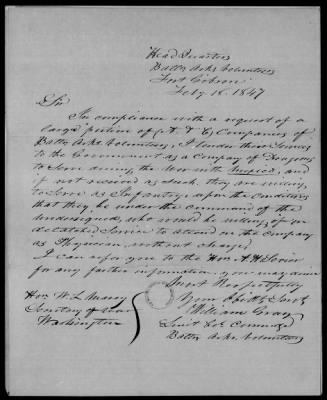 Head Quarters
Battn Arks Volunteers
Fort Gibson
Feby 18. 1847
Sir
In compliance with a request of a
large portion of (A. & C) Companies of
Battn Arks Volunteers, I tender their Services
to the Government as a Company of Dragoons
to Serve during the War with Mexico, and
if not received as such, they are willing
to Serve as Infantry, upon the Conditions
that they be under the command of the
Undersigned, who would be willing if on
detached Service to attend on the Company
as Physician, without charge
I can refer you to the Hon. A. H. Sevier
for any further information you may desire
Most Respectfully
Your Obdt Servt
William Gray
Lieut Col Commdg
Battn Arks. Volunteers
Hon. W. L. Marcy
Secretary of War
Washington